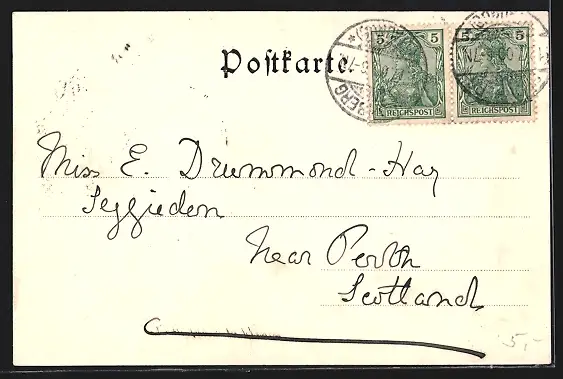 Postkarte.
5 5
REICHSPOST REICHSPOST
Miss E. Drummond-Hay
Seggieden
Near Perth
Scotland
5,-